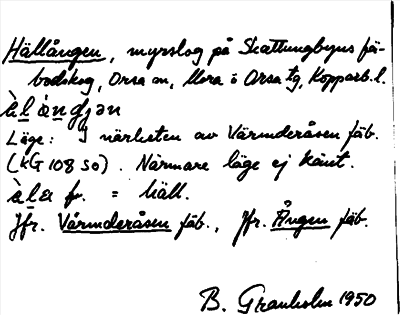 Hållången, myrslog på Skattungbyns fä-
bodskog, Orsa sn, Mora o Orsa tg, Kopparb. l.
Läge: I närheten av Värmderåsen fäb.
(KG 108 SO). Närmare läge ej känt.
fr. = häll.
Jfr. Värmderåsen fäb., Jfr. Ången fäb.
B. Granholm 1950